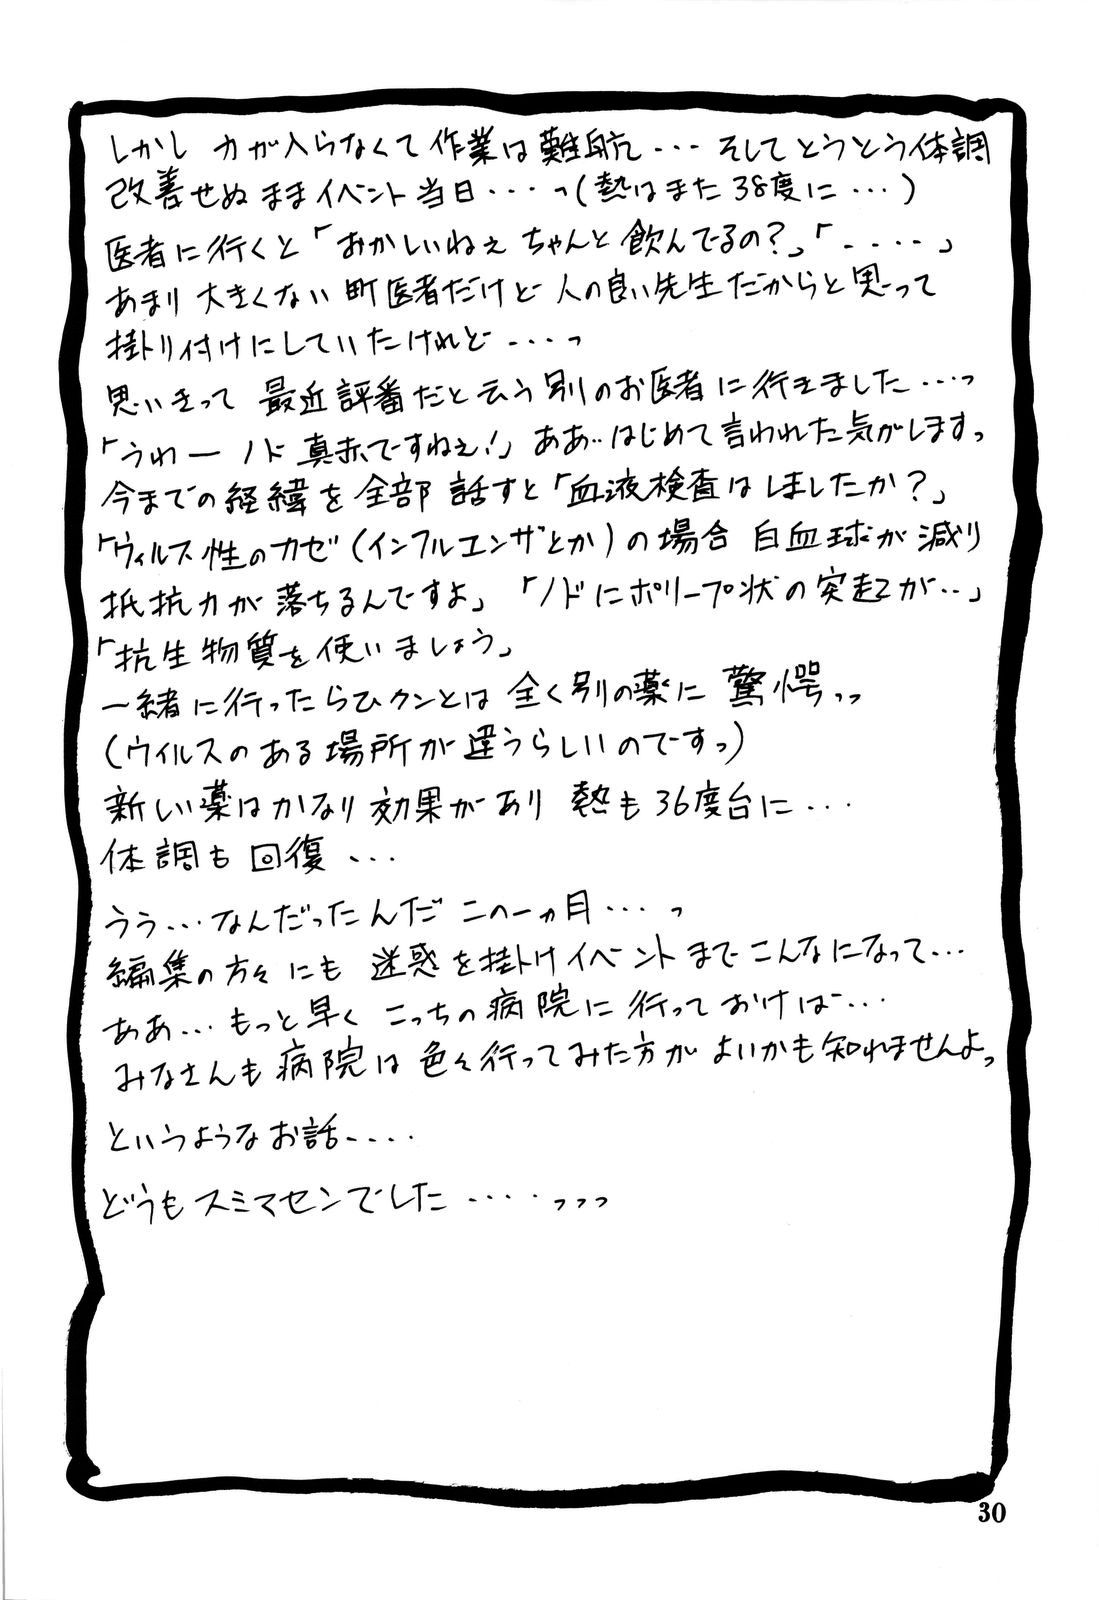 しかし 力が入らなくて作業は難航・・・ そしてとうとう体調
改善せぬままイベント当日・・・っ(熱はまた38度に・・・)
医者に行くと「おかしいねぇ ちゃんと飲んでるの?」「・・・・」
あまり大きくない町医者だけど 人の良い先生だからと思って
掛かり付けにしていたけれど・・・っ
思いきって 最近評番だと云う別のお医者に行きました・・・っ
「うわー ノド真赤ですねぇ!」ああ・・はじめて言われた気がしますっ
今までの経緯を全部話すと「血液検査はしましたか?」
「ウィルス性のカゼ(インフルエンザとか)の場合 白血球が減り
抵抗力が落ちるんですよ」「ノドにポリープ状の突起が・・」
「抗生物質を使いましょう」
一緒に行ったらひクンとは全く別の薬に驚愕っっ
(ウイルスのある場所が違うらしいのですっ)
新しい薬はかなり効果があり 熱も36度台に・・・
体調も回復・・・
うう・・・なんだったんだ この一ヵ月・・・っ
編集の方々にも 迷惑を掛けイベントまでこんなになって・・・
ああ・・・もっと早く こっちの病院に行っておけば・・・
みなさんも病院は色々行ってみた方がよいかも知れませんよっ
というようなお話・・・・
どうもスミマセンでした・・・・っっっ
30